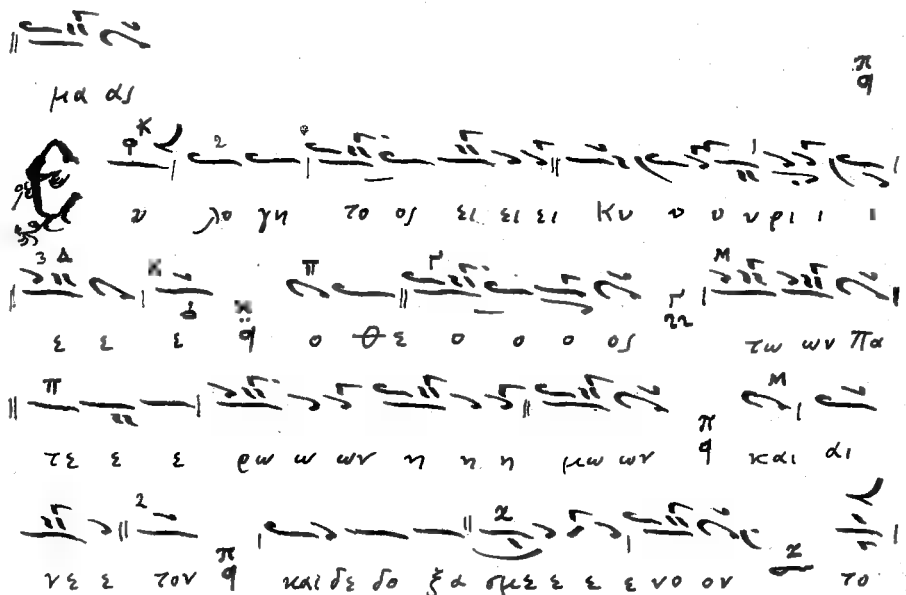 μα ας
Ευ λο γη το ος ει ει ει Κυ υ υ υ ρι ι ι
ε ε ε ο Θε ο ο ο ος τω ων Πα
τε ε ε ρω ω ων η η η μω ων και αι
νε ε τον και δε δο ξα σμε ε ε ε νο ον το